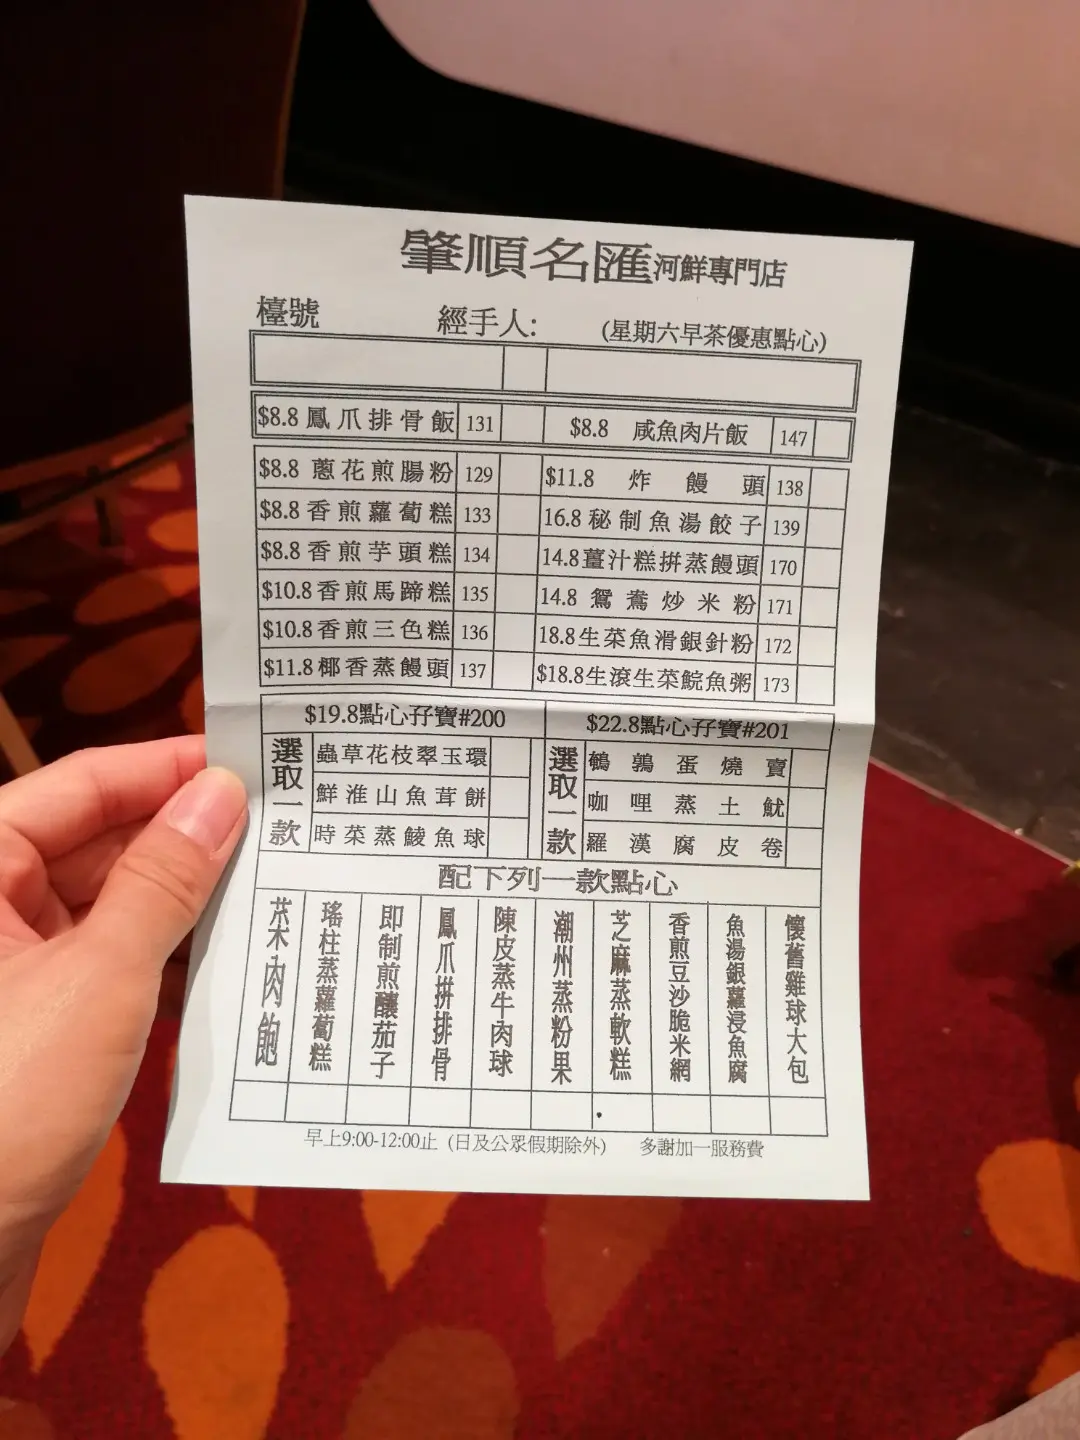 肇順名匯河鮮專門店
檯號 經手人: (星期六早茶優惠點心)
$8.8 鳳爪排骨飯 131 $8.8 咸魚肉片飯 147
$8.8 蔥花煎腸粉 129 $11.8 炸饅頭 138
$8.8 香煎蘿蔔糕 133 16.8 秘制魚湯餃子 139
$8.8 香煎芋頭糕 134 14.8 薑汁糕拼蒸饅頭 170
$10.8 香煎馬蹄糕 135 14.8 鴛鴦炒米粉 171
$10.8 香煎三色糕 136 18.8 生菜魚滑銀針粉 172
$11.8 椰香蒸饅頭 137 $18.8 生滾生菜鯇魚粥 173
$19.8點心孖寶#200 $22.8點心孖寶#201
選取一款
蟲草花枝翠玉環
鮮淮山魚茸餅
時菜蒸鯪魚球
選取一款
鵪鶉蛋燒賣
咖哩蒸土魷
羅漢腐皮卷
配下列一款點心
菜肉飽
瑤柱蒸蘿蔔糕
即制煎釀茄子
鳳爪拼排骨
陳皮蒸牛肉球
潮州蒸粉果
芝麻蒸軟糕
香煎豆沙脆米網
魚湯銀蘿浸魚腐
懷舊雞球大包
早上9:00-12:00止 (日及公眾假期除外) 多謝加一服務費